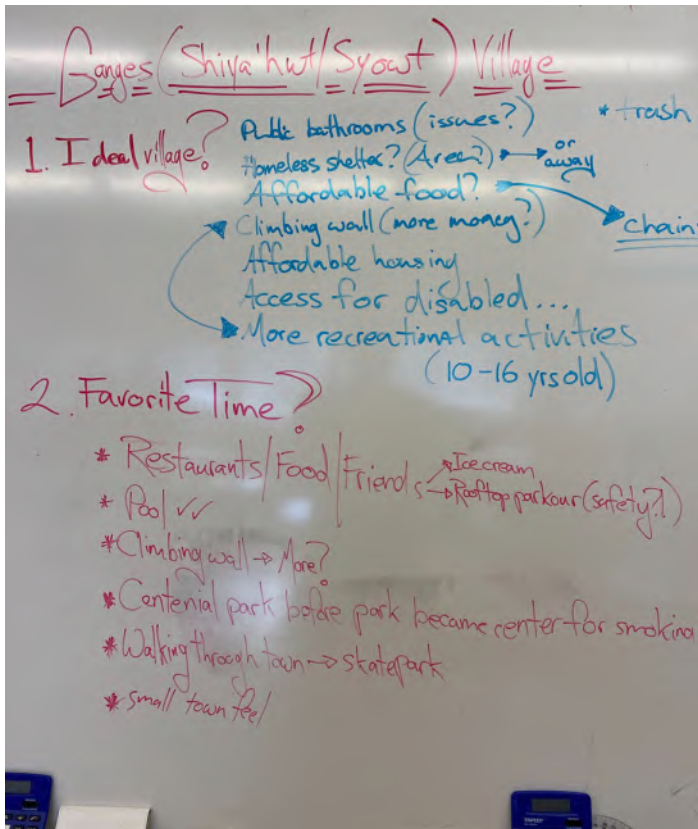 Ganges (Shiya'hwt/Syowt) Village
1. Ideal village?
Public bathrooms (issues?)
* trash
Homeless shelter? (Area?) → or away
Affordable food? → chain
Climbing wall (more money?)
Affordable housing
Access for disabled...
More recreational activities
(10-16 yrs old)
2. Favorite Time?
* Restaurants/Food/Friends → Ice cream
→ Rooftop parkour (safety?!)
* Pool ✓✓
* Climbing wall → More?
* Centenial park before park became center for smoking
* Walking through town → skatepark
* small town feel